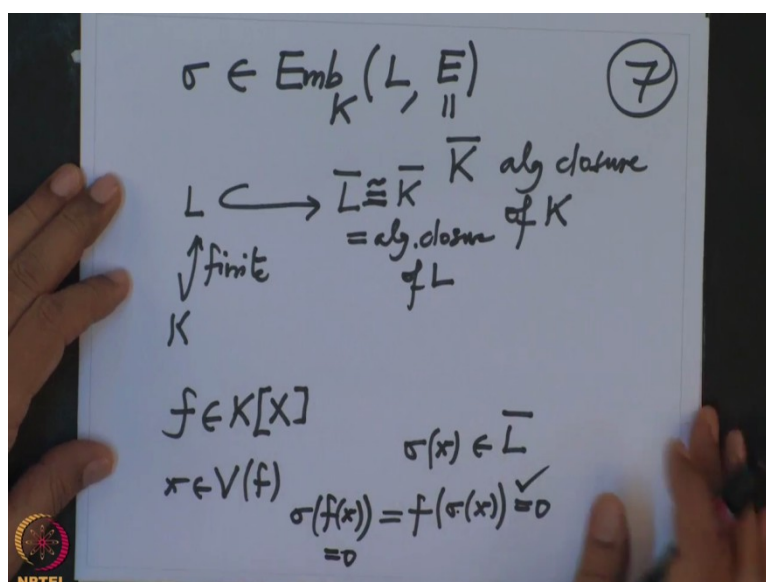 σ ∈ Emb_K (L, E̅)
7
‖
K̅ alg closure of K
L ↪ L̅ ≅ K̅
= alg. closure of L
finite
K
f ∈ K[X]
σ(x) ∈ L̅
x ∈ V(f)
σ(f(x)) = f(σ(x)) = 0 ✓
= 0
NPTEL